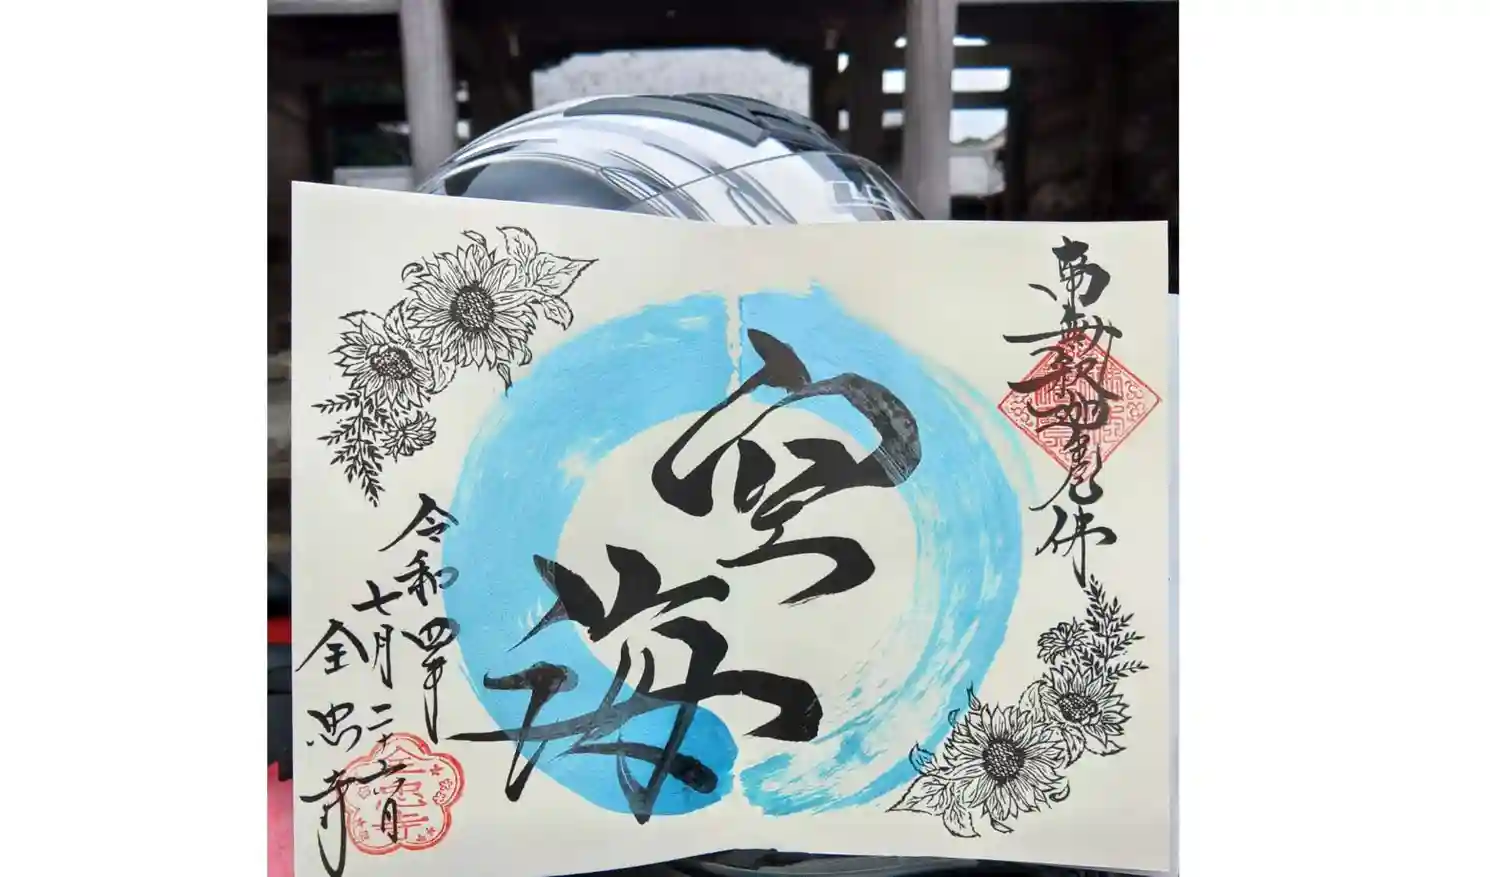 南無釈迦牟尼佛
空
令和四年
七月二十六日
全忠寺
全忠寺